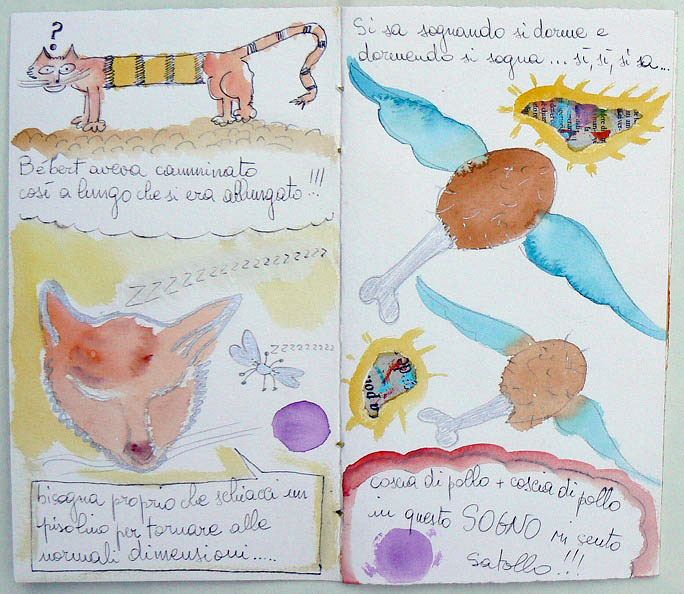 ?
Bébert aveva camminato
così a lungo che si era allungato...!!!
ZZZZZZZZZZZZZZZZZZZZ
ZZZZZZZZZ
bisogna proprio che schiacci un
pisolino per tornare alle
normali dimensioni.....
Si sa sognando si dorme e
dormendo si sogna... sì, sì, si sa...
à poi
coscia di pollo + coscia di pollo
in questo SOGNO mi sento
satollo!!!